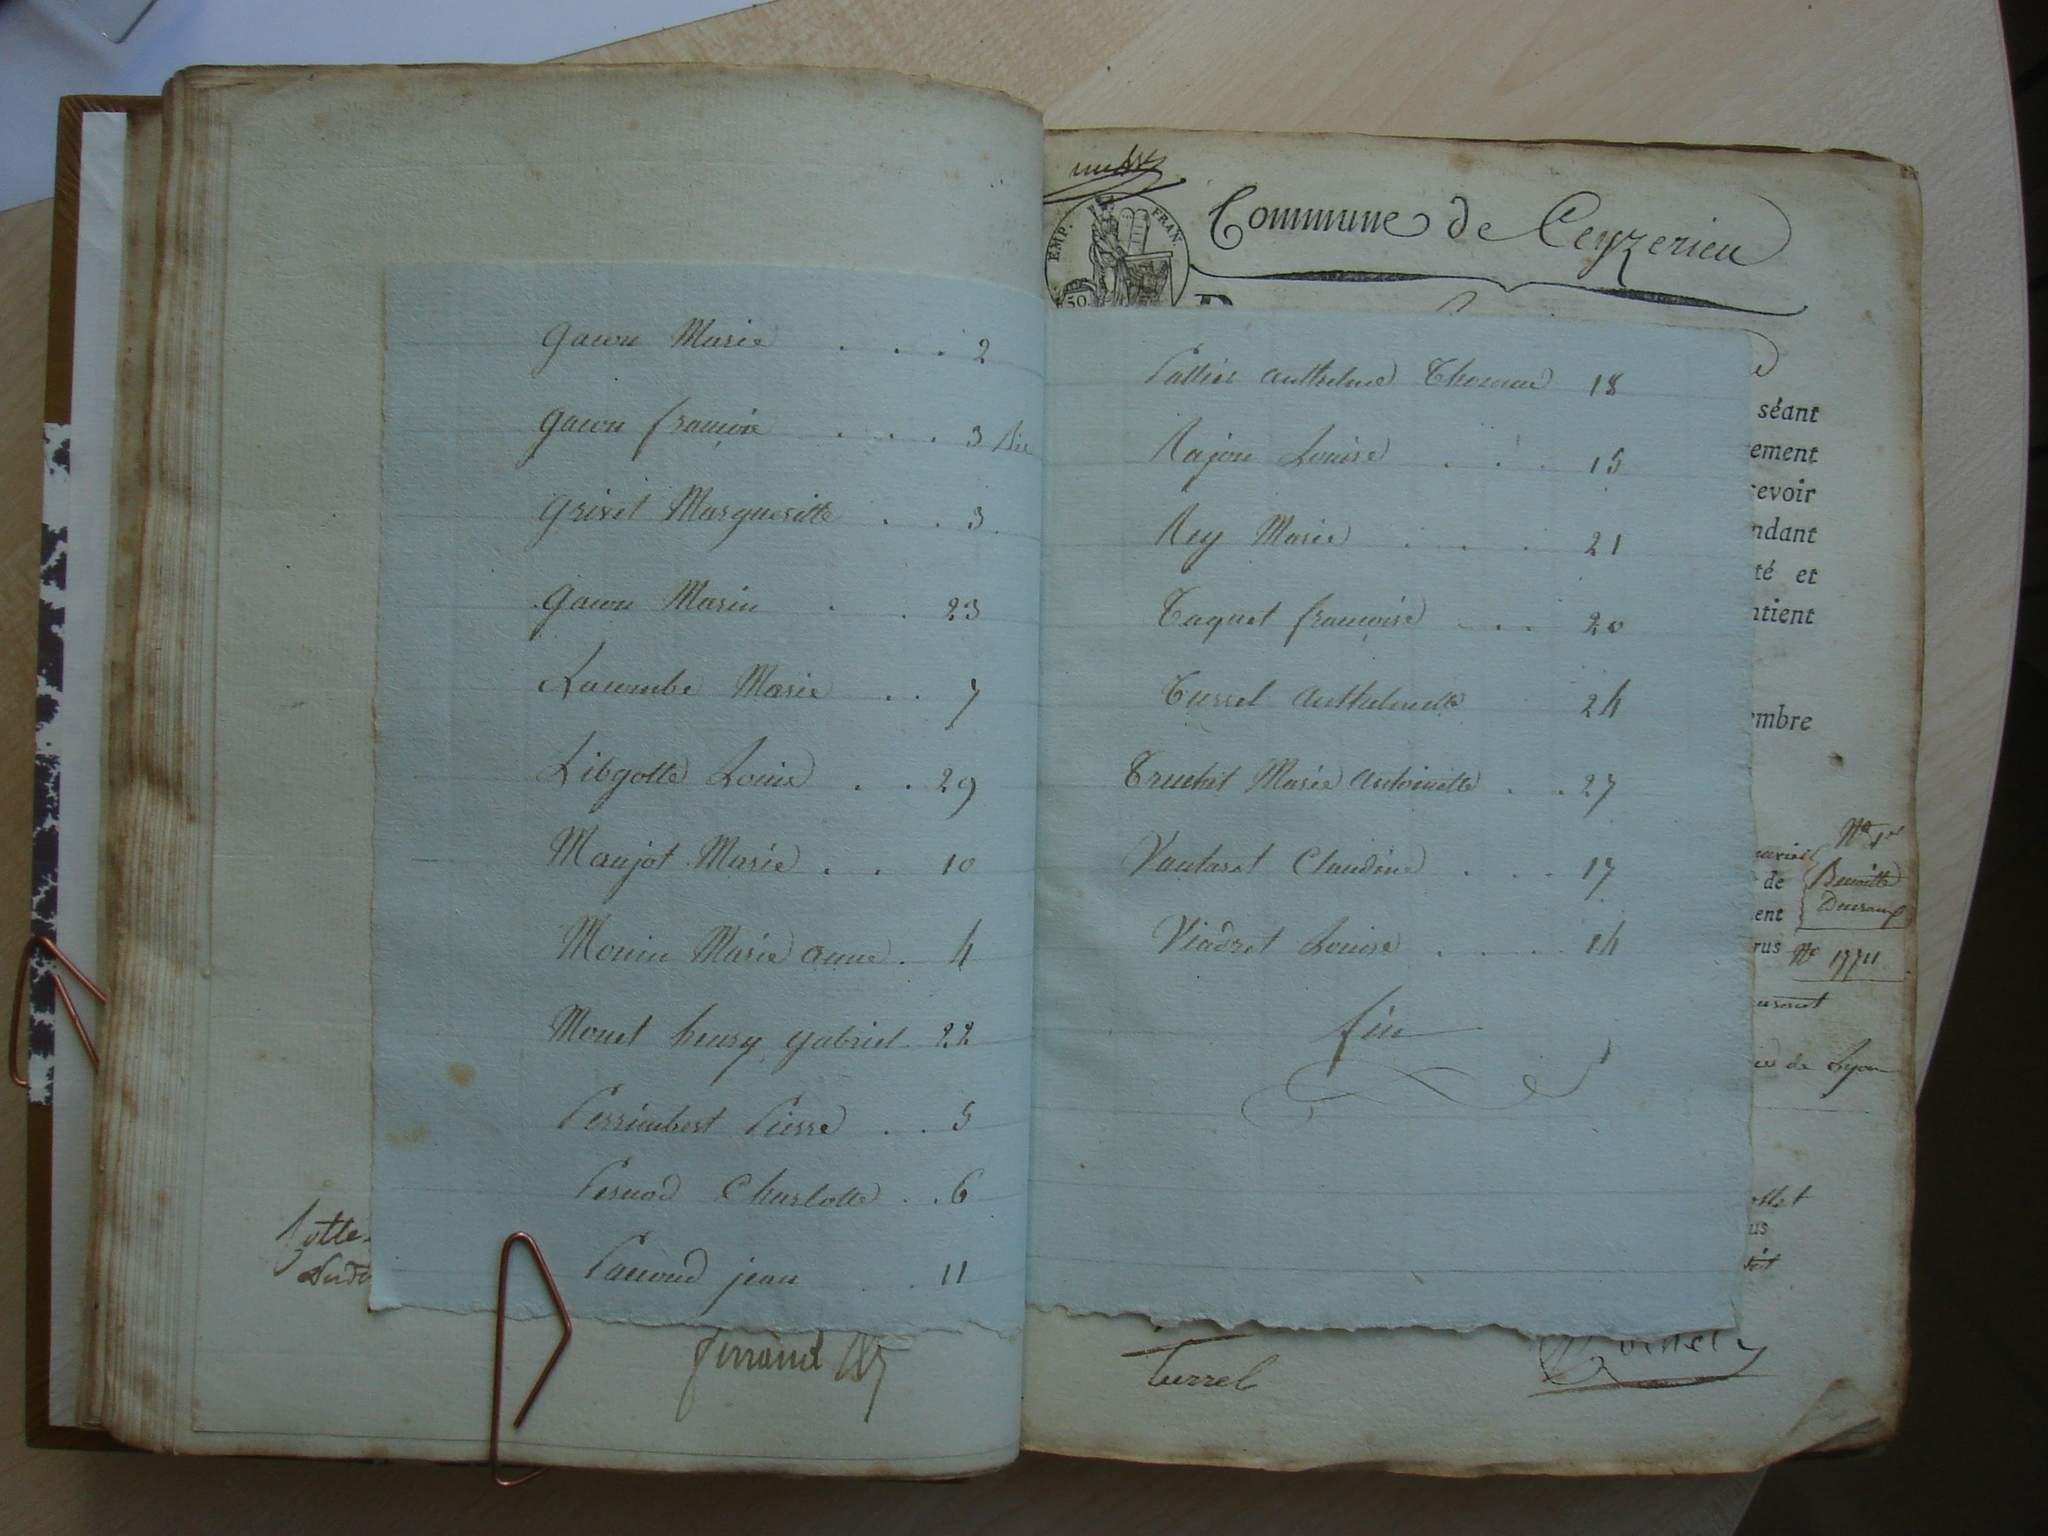 Gacon Marie . . . 2
Gacon françoise . . . 3 Bis
Grivet Margueritte . . 3
Gacon Marin . . 23
Lacombe Marie . . 7
Libgotte Louise . . 29
Maujot Marie . . 10
Monin Marie anne . 4
Monet henry gabriel . 22
Perrimbert Pierre . . 5
Pernod Charlotte . . 6
Pacoud jean . 11
ferrand
EMP. FRAN.
50
Commune de Ceyzerieu
Pallier anthelme Thomas 18
Rajon Louise . . . 15
Rey Marie . . . 21
Taquet françoise . . . 20
Turrel anthelmette 24
Truchet Marie antoinette . . 27
Vautaret Claudine . . . 17
Viadret Louise . . . . 14
fin
séant
ement
evoir
ndant
té et
ntient
embre
N.° 1er
Benoitte
de
ent
rus
N.°
de Lyon
us
Turrel